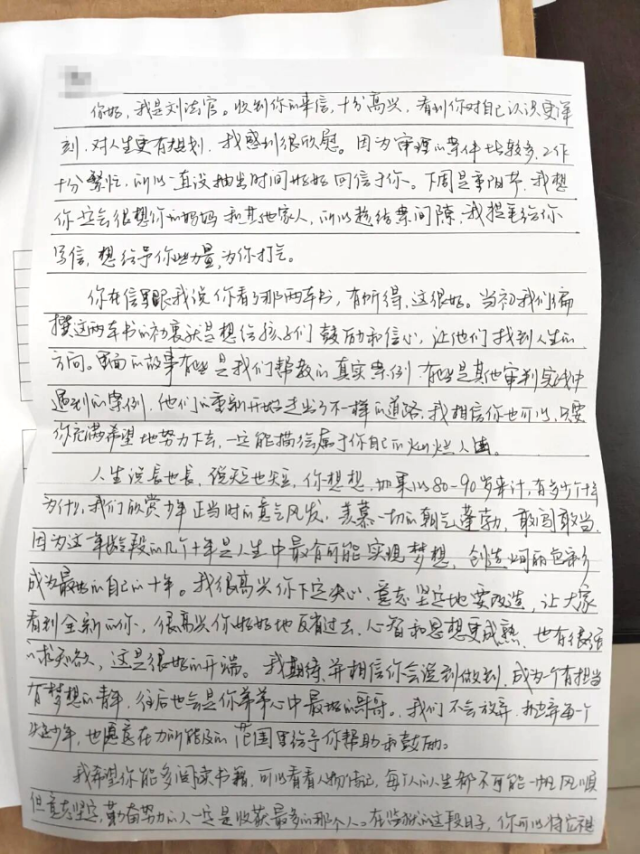 你好，我是刘法官。收到你的来信，十分高兴，看到你对自己认识更深
刻，对人生更有规划，我感到很欣慰。因为审理的案件比较多，工作
十分繁忙，所以一直没抽出时间好好回信于你。下周是重阳节，我想
你一定会很想你的妈妈和其他家人，所以趁结案间隙，我提笔给你
写信，想给予你些力量，为你打气。
你在信里跟我说你看了那两本书，有所得，这很好。当初我们编
撰这两本书的初衷就是想给孩子们鼓励和信心，让他们找到人生的
方向。里面的故事有些是我们帮教的真实案例，有些是其他审判实践中
遇到的案例，他们重新开始走出了不一样的道路，我相信你也可以，只要
你充满希望地努力下去，一定能描绘属于你自己的灿烂人生。
人生说长也长，说短也短，你想想，如果以80-90岁来计，有多少个十年
为什么我们欣赏少年正当时的意气风发，羡慕一切的朝气蓬勃，敢闯敢当
因为这年龄段的几个十年是人生中最有可能实现梦想，创造绚丽色彩，
成为最好的自己的十年。我很高兴你下定决心，意志坚定地要改造，让大家
看到全新的你，很高兴你好好地反省过去，心智和思想更成熟，也有很强
的求知欲，这是很好的开端。我期待并相信你会说到做到，成为一个有担当
有梦想的青年，往后也会是你弟弟心中最好的哥哥。我们不会放弃每一个
失足少年，也愿意在力所能及的范围里给予你帮助和鼓励。
我希望你能多阅读书籍，可以看看人物传记，每个人的人生都不可能一帆风顺
但意志坚定，勤奋努力的人一定是收获最多的那个人。在监狱的这段日子，你可以将它视